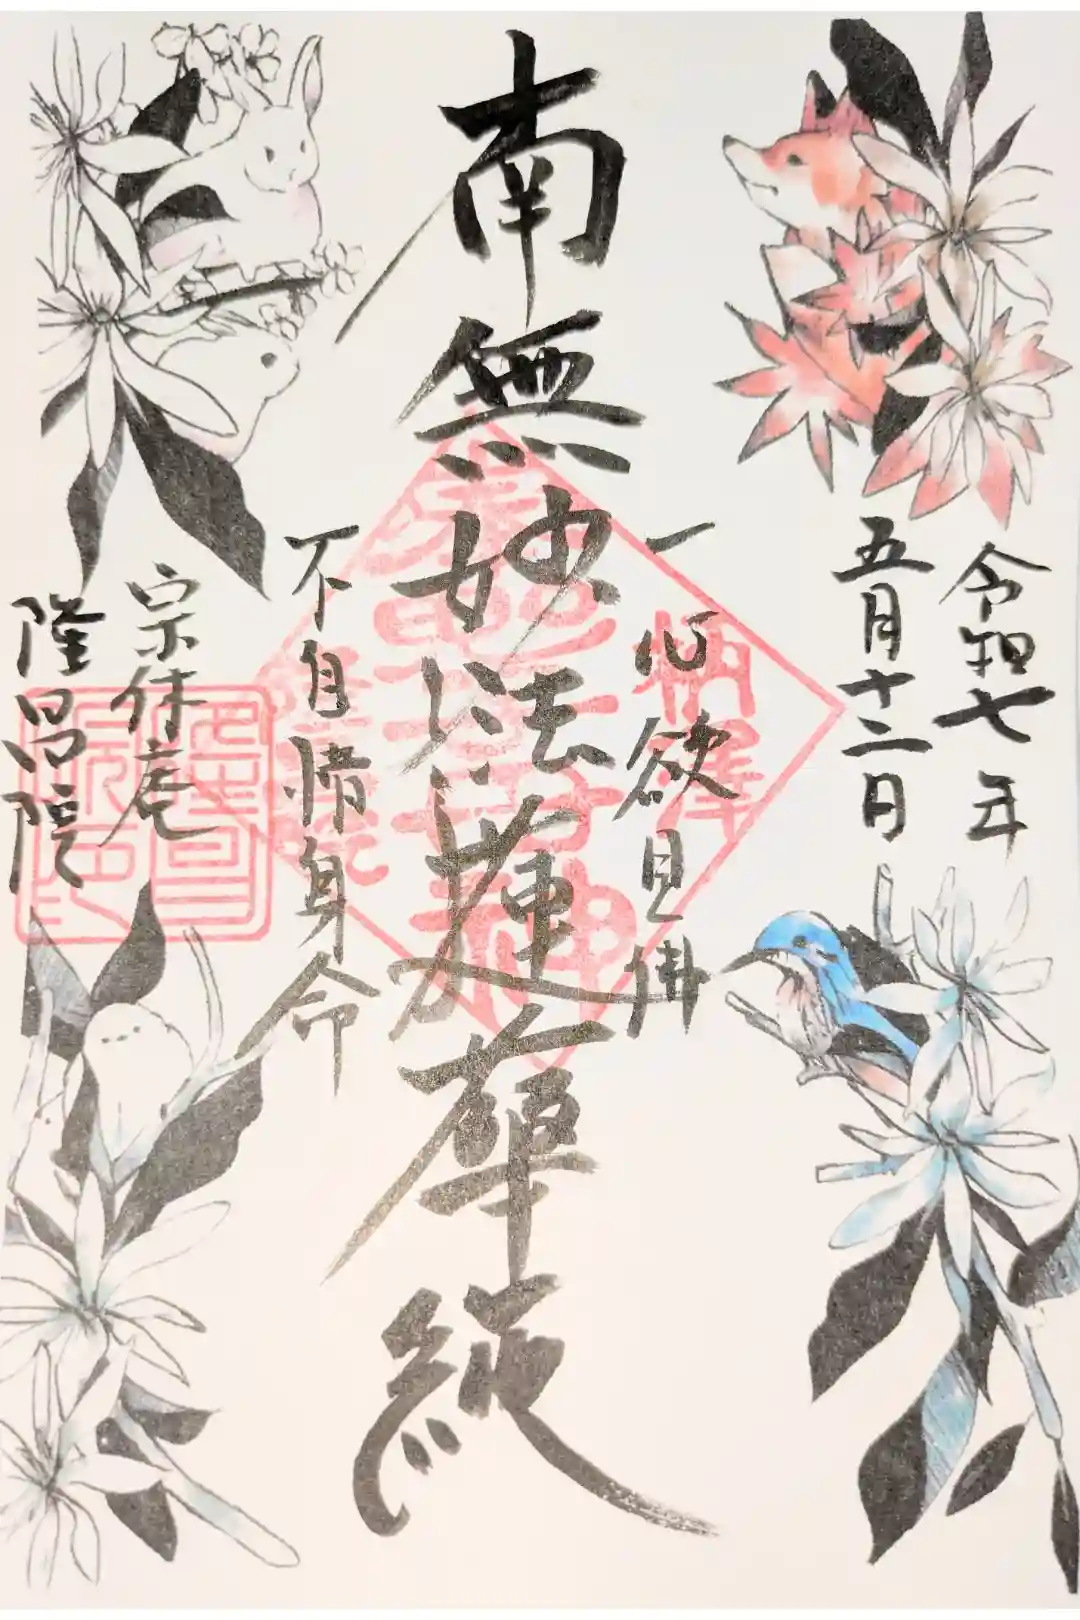 令和七年
五月十二日
一心欲見佛
南無妙法蓮華経
不自惜身命
宗休庵
隆昌院